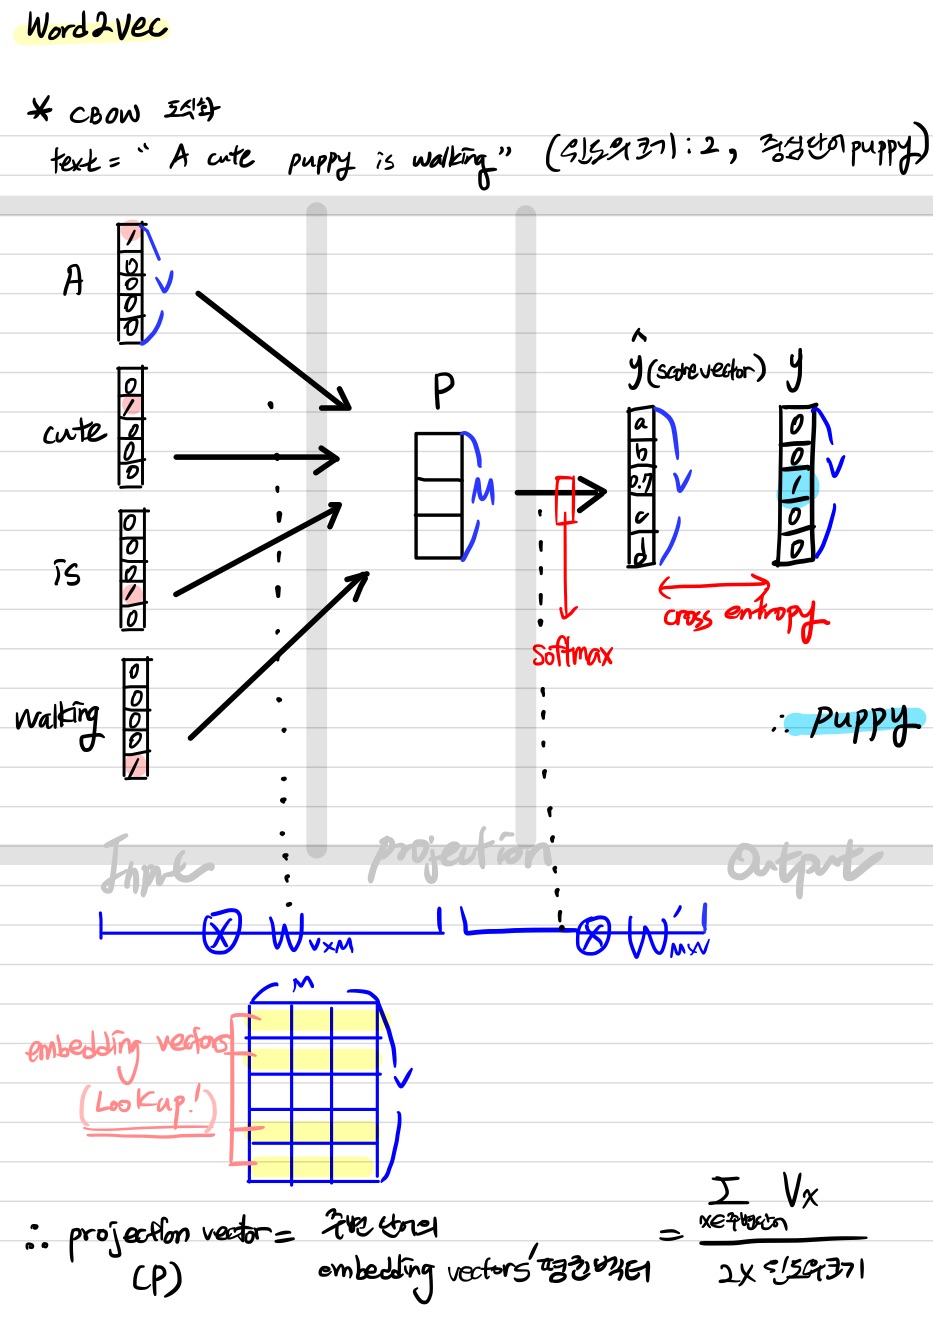 Word2Vec
* CBOW 도식화
text = " A cute puppy is walking" (윈도우크기 : 2, 중심단어 puppy)
A
1
0
0
0
0
V
cute
0
1
0
0
0
is
0
0
0
1
0
walking
0
0
0
0
1
P
M
softmax
ŷ (score vector)
a
b
0.7
c
d
V
y
0
0
1
0
0
V
cross entropy
∴ puppy
Input
projection
Output
⊗ W VxM
⊗ W' MxV
M
V
embedding vectors
(Lookup!)
∴ projection vector = 주변 단어의 = Σ Vx
x∈주변단어
(P) embedding vectors' 평균벡터 2x 윈도우크기